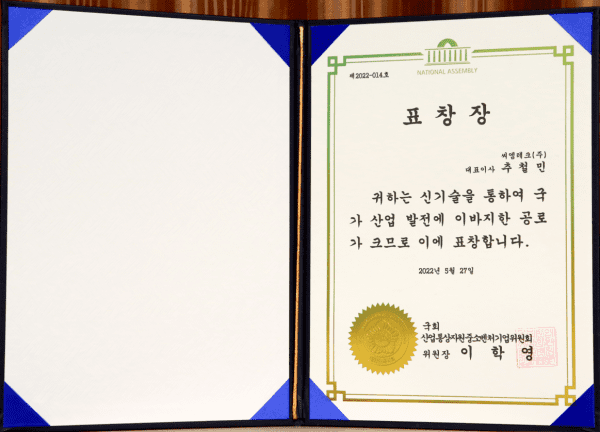 NATIONAL ASSEMBLY
제2022-014호
표 창 장
씨엠테크(주)
대표이사 추 철 민
귀하는 신기술을 통하여 국
가 산업 발전에 이바지한 공로
가 크므로 이에 표창합니다.
2022년 5월 27일
국회
산업통상자원중소벤처기업위원회
위원장 이 학 영